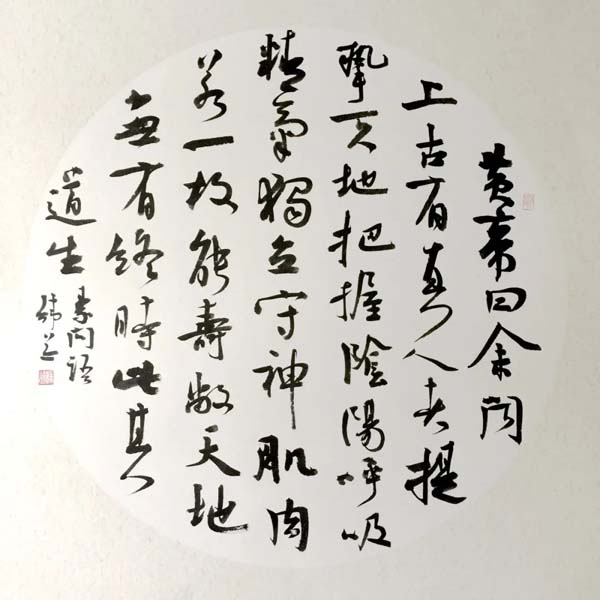 黄帝曰余闻
上古有真人者提
挈天地把握陰陽呼吸
精氣獨立守神肌肉
若一故能壽敝天地
無有终時此其
道生
素问語